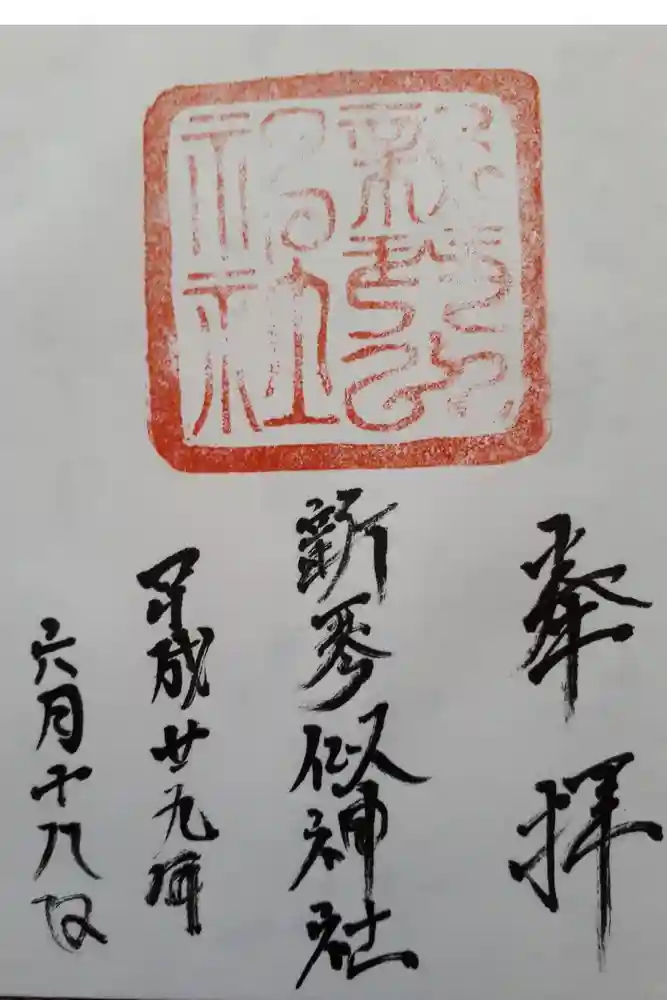 奉拝
新琴似神社
平成廿九年
六月十八日
神社